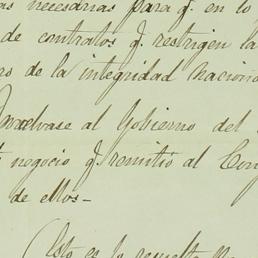 necesarias para q. en lo
de contratos q. restrigen la
de la integridad nacion
vuelvase al Gobierno del
negocio q. remitió al Con
de ellos—
Esto es lo